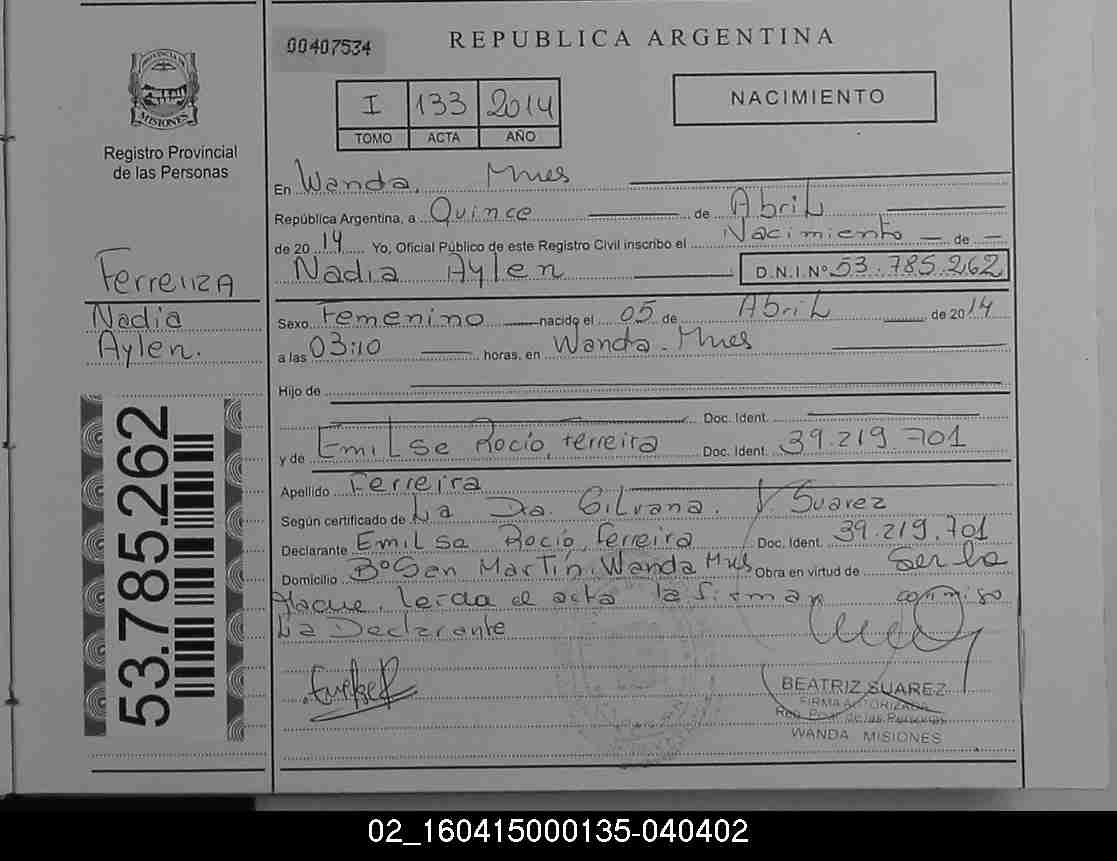 00407534
REPUBLICA ARGENTINA
PROVINCIA DE
MISIONES
Registro Provincial
de las Personas
I 133 2014
TOMO ACTA AÑO
NACIMIENTO
En Wanda, Mnes
República Argentina, a Quince de Abril
de 2014 Yo, Oficial Público de este Registro Civil inscribo el Nacimiento de
Nadia Aylen D.N.I.Nº 53.785.262
Sexo Femenino nacido el 05 de Abril de 2014
a las 03:10 horas, en Wanda. Mnes
Hijo de
Doc. Ident.
y de Emilse Rocío, Ferreira Doc. Ident. 39.219.701
Apellido Ferreira
Según certificado de La Dra. Silvana. V. Suarez
Declarante Emilse Rocío, Ferreira Doc. Ident. 39.219.701
Domicilio Bº San Martín. Wanda Mnes Obra en virtud de Ser la
Madre. Leída el acta la firman conmigo
La Declarante
BEATRIZ SUAREZ
FIRMA AUTORIZADA
Reg. Prov. de las Personas
WANDA MISIONES
Ferreira
Nadia
Aylen.
53.785.262
02_160415000135-040402